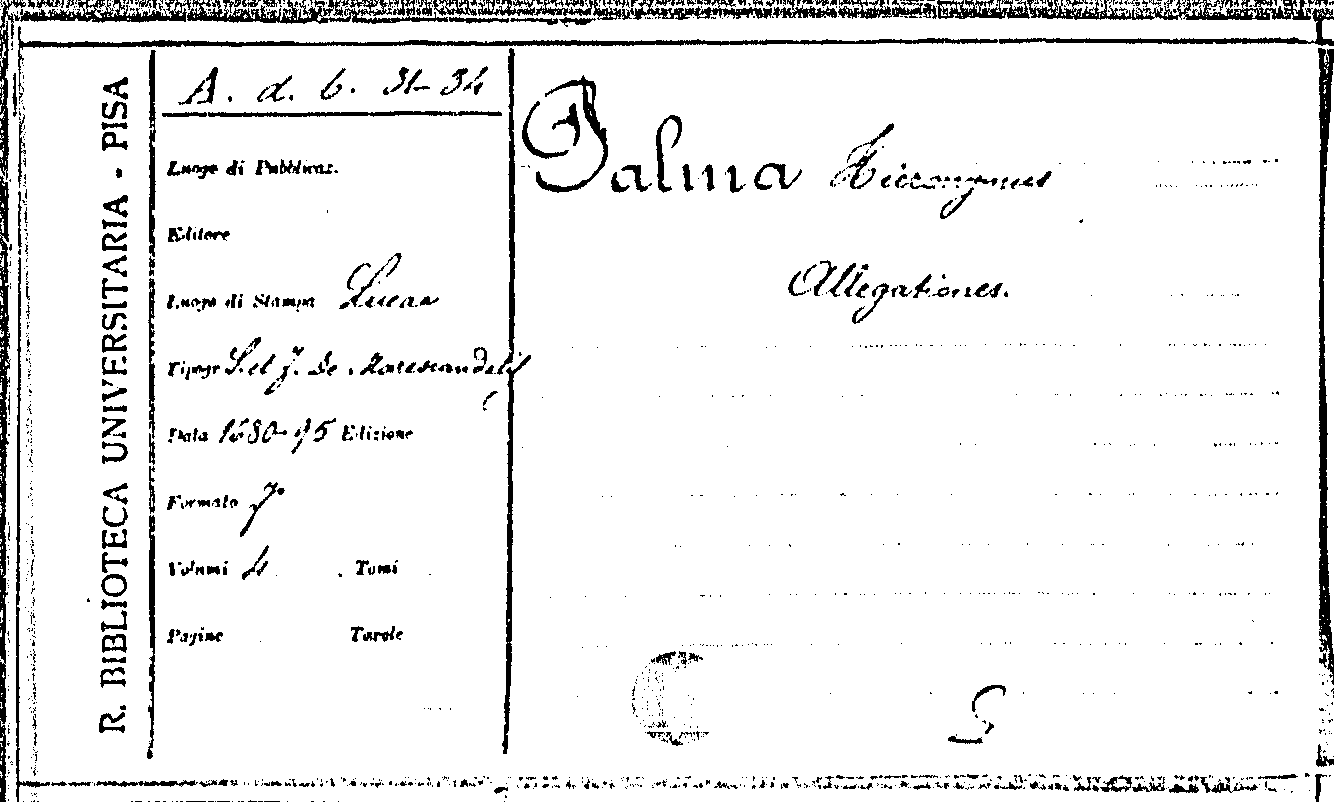 R. BIBLIOTECA UNIVERSITARIA - PISA
A. d. 6. 31-34
Luogo di Pubblicaz.
Editore
Luogo di Stampa Lucae
Tipogr S. et J. De Marescandoli
Data 1680-95 Edizione
Formato fo
Volumi 4 Tomi
Pagine Tavole
Palma Hieronymus
Allegationes.